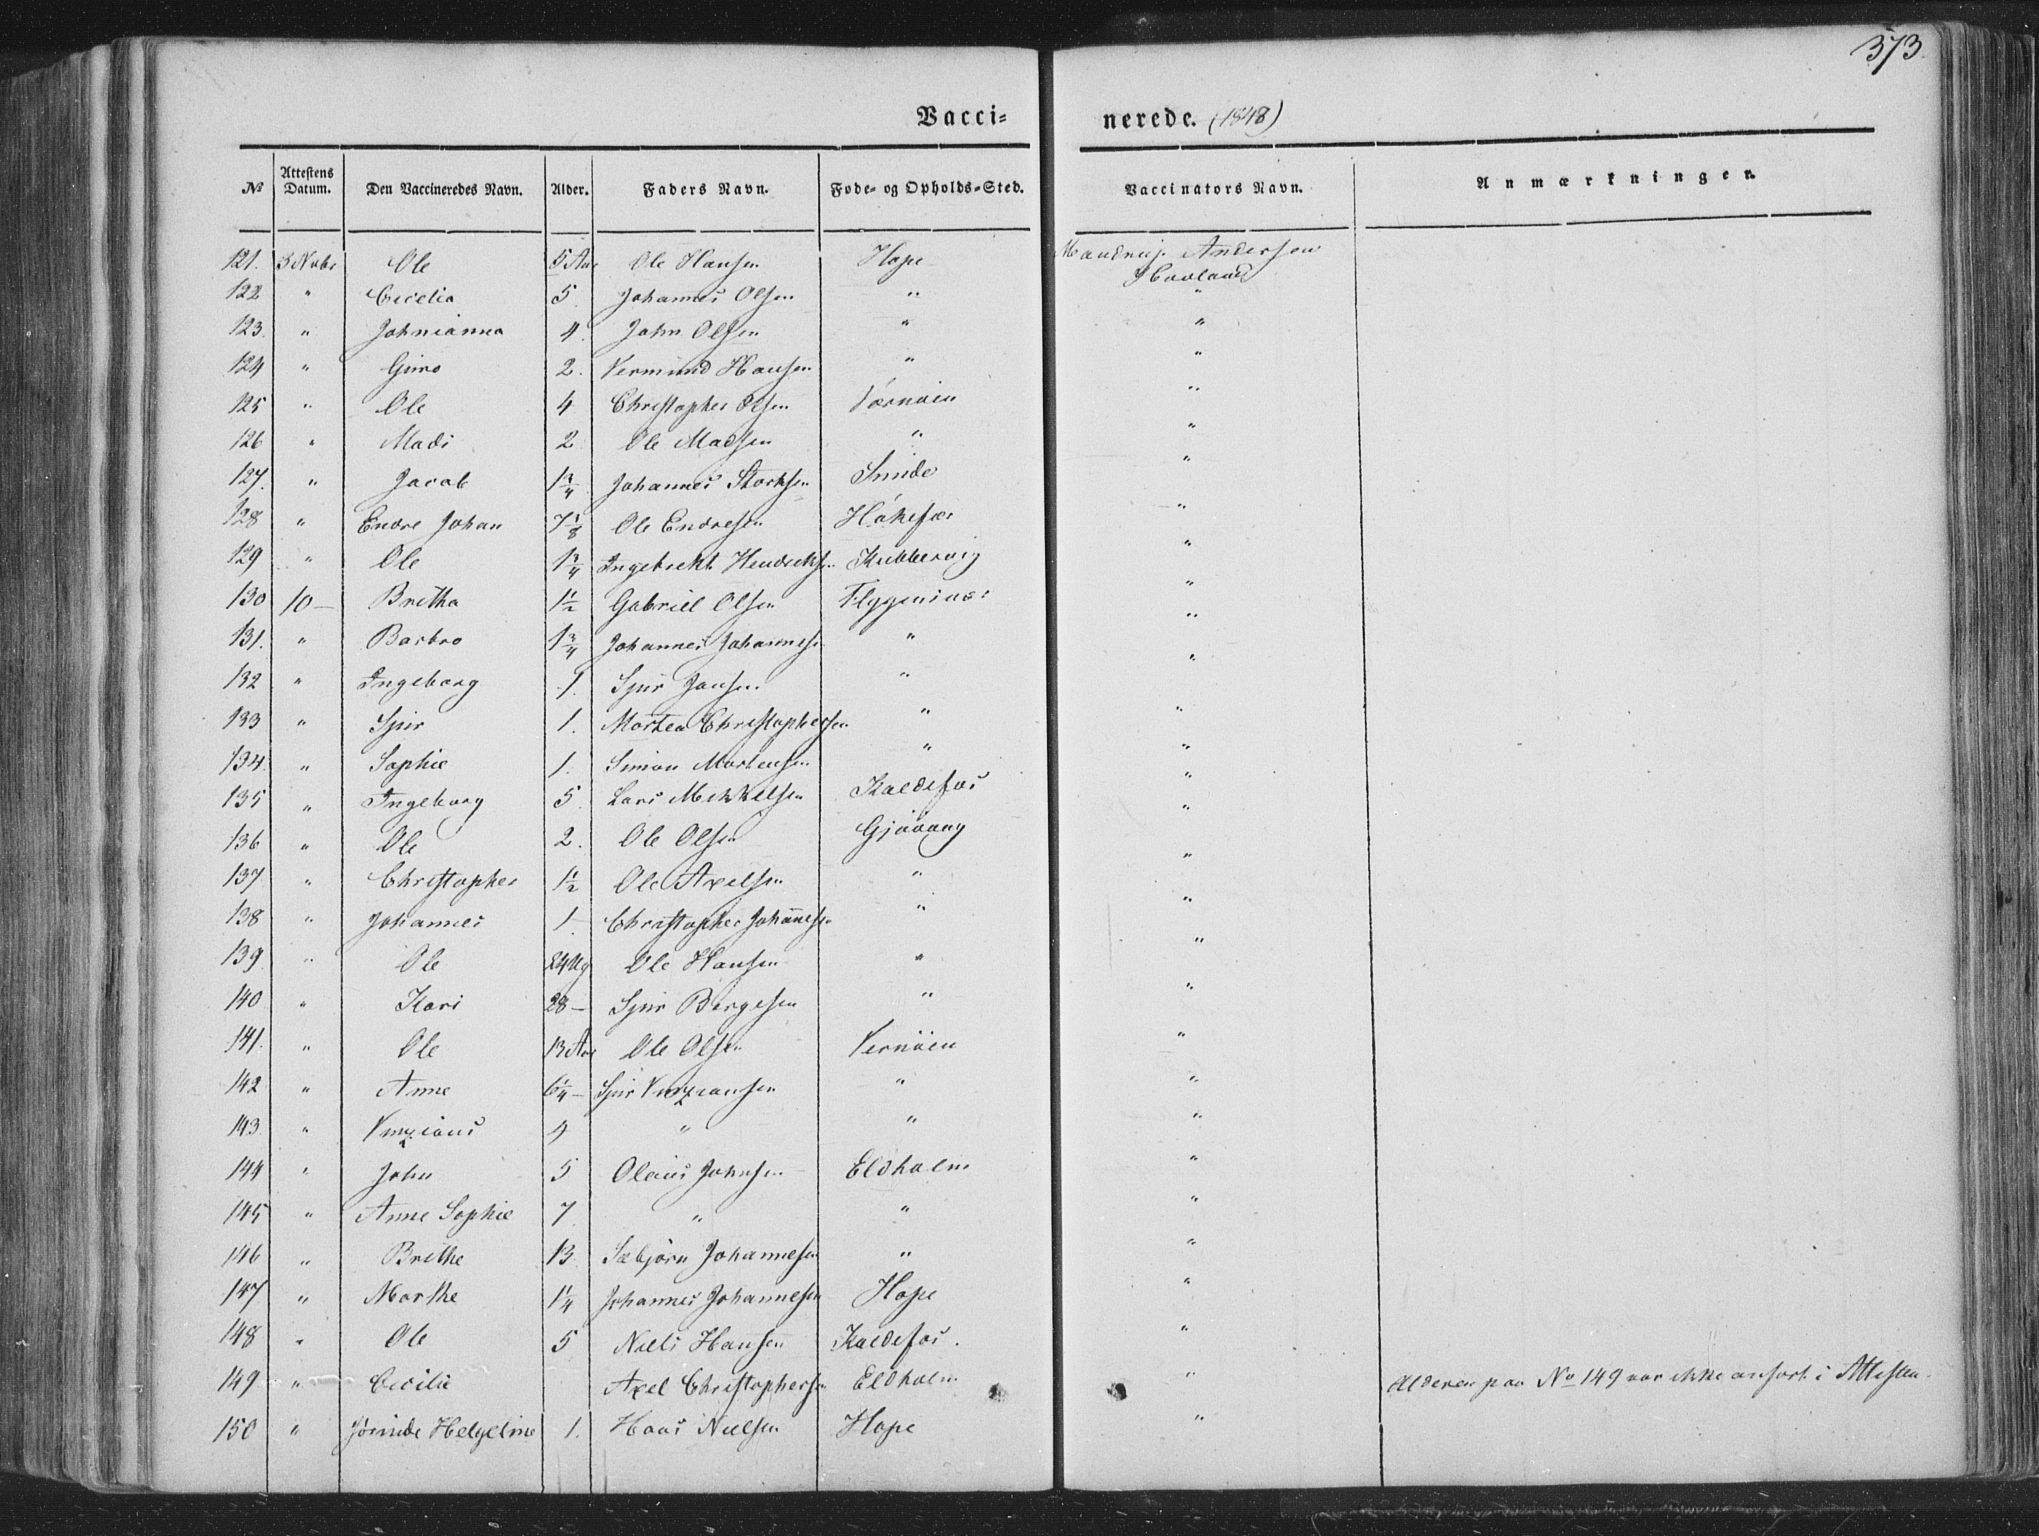 373.
Vacci- nerede. (1848)
№ Attestens Datum. Den Vaccineredes Navn. Alder. Faders Navn. Føde- og Opholds-Sted. Vaccinators Navn. Anmærkninger.
121. 3 Novbr Ole 5 Aar Ole Hansen Hope Mandrup Andersen
Hovland
122 " Cecelia 5. Johannes Olsen " "
123. " Johnianna 4. John Olsen " "
124 " Guro 2. Vermund Hansen " "
125 " Ole 4 Christopher Olsen Værnøien "
126 " Mads 2 Ole Madsen " "
127. " Jacob 1¾ Johannes Storksen Sunde "
128 " Endre Johan 7⅛ Ole Endresen "
129 " Ole 1¾ Ingebrekt Hendriksen Kubbervig "
130 10 — Bretha 1½ Gabriel Olsen "
131. " Barbro 1¾ Johannes Johannesen " "
132 " Ingeborg 1. Sjur Jansen " "
133 " Sjur 1. Morten Christophersen " "
134. " Sophie 1. Simon Mortensen " "
135 " Ingeborg 5. Lars Mikkelsen Kaldefos "
136 " Ole 2. Ole Olsen Gjøvaag "
137 " Christopher 1½ Ole Axelsen " "
138 " Johannes 1. Christopher Johannesen " "
139 " Ole 24 Ug Ole Hansen " "
140 " Kari 28 — Sjur Børgesen " "
141. " Ole 13 Aar Ole Olsen Vernøien "
142 " Anne 6¼ — Sjur " "
143. " 4 " " "
144 " John 5 Olaus Johnsen Eldholm "
145 " Anne Sophie 7. " " "
146 " Brithe 13. Sæbjørn Johannesen " "
147 " Marthe 1¼ Johannes Johannesen Hope "
148 " Ole 5 Niels Hansen Kaldefos. "
149 " Cecilie Axel Christophersen Eldholm " Alderen paa No 149 var ikke anført i Attesten.
150 " Helgeline 1. Haas Nielsen Hope "